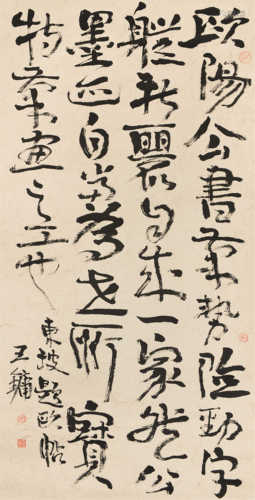 歐陽公書筆勢險勁字
躰新麗自成一家然公
墨迹自當為世所寶
特筆畫之工也
東坡題歐帖
王鏞